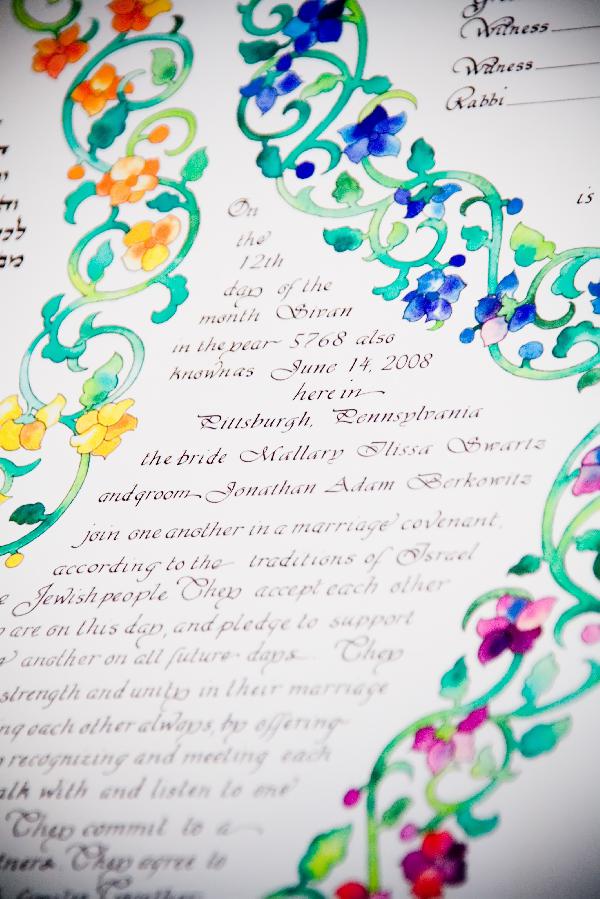 Witness
Witness
Rabbi
is
On
the
12th
day of the
month Sivan
in the year 5768 also
known as June 14, 2008
here in
Pittsburgh, Pennsylvania
the bride Mallary Ilissa Swartz
and groom Jonathan Adam Berkowitz
join one another in a marriage covenant,
according to the traditions of Israel
Jewish people They accept each other
are on this day, and pledge to support
another on all future days. They
strength and unity in their marriage
each other always, by offering
recognizing and meeting each
with and listen to one
They commit to a
They agree to